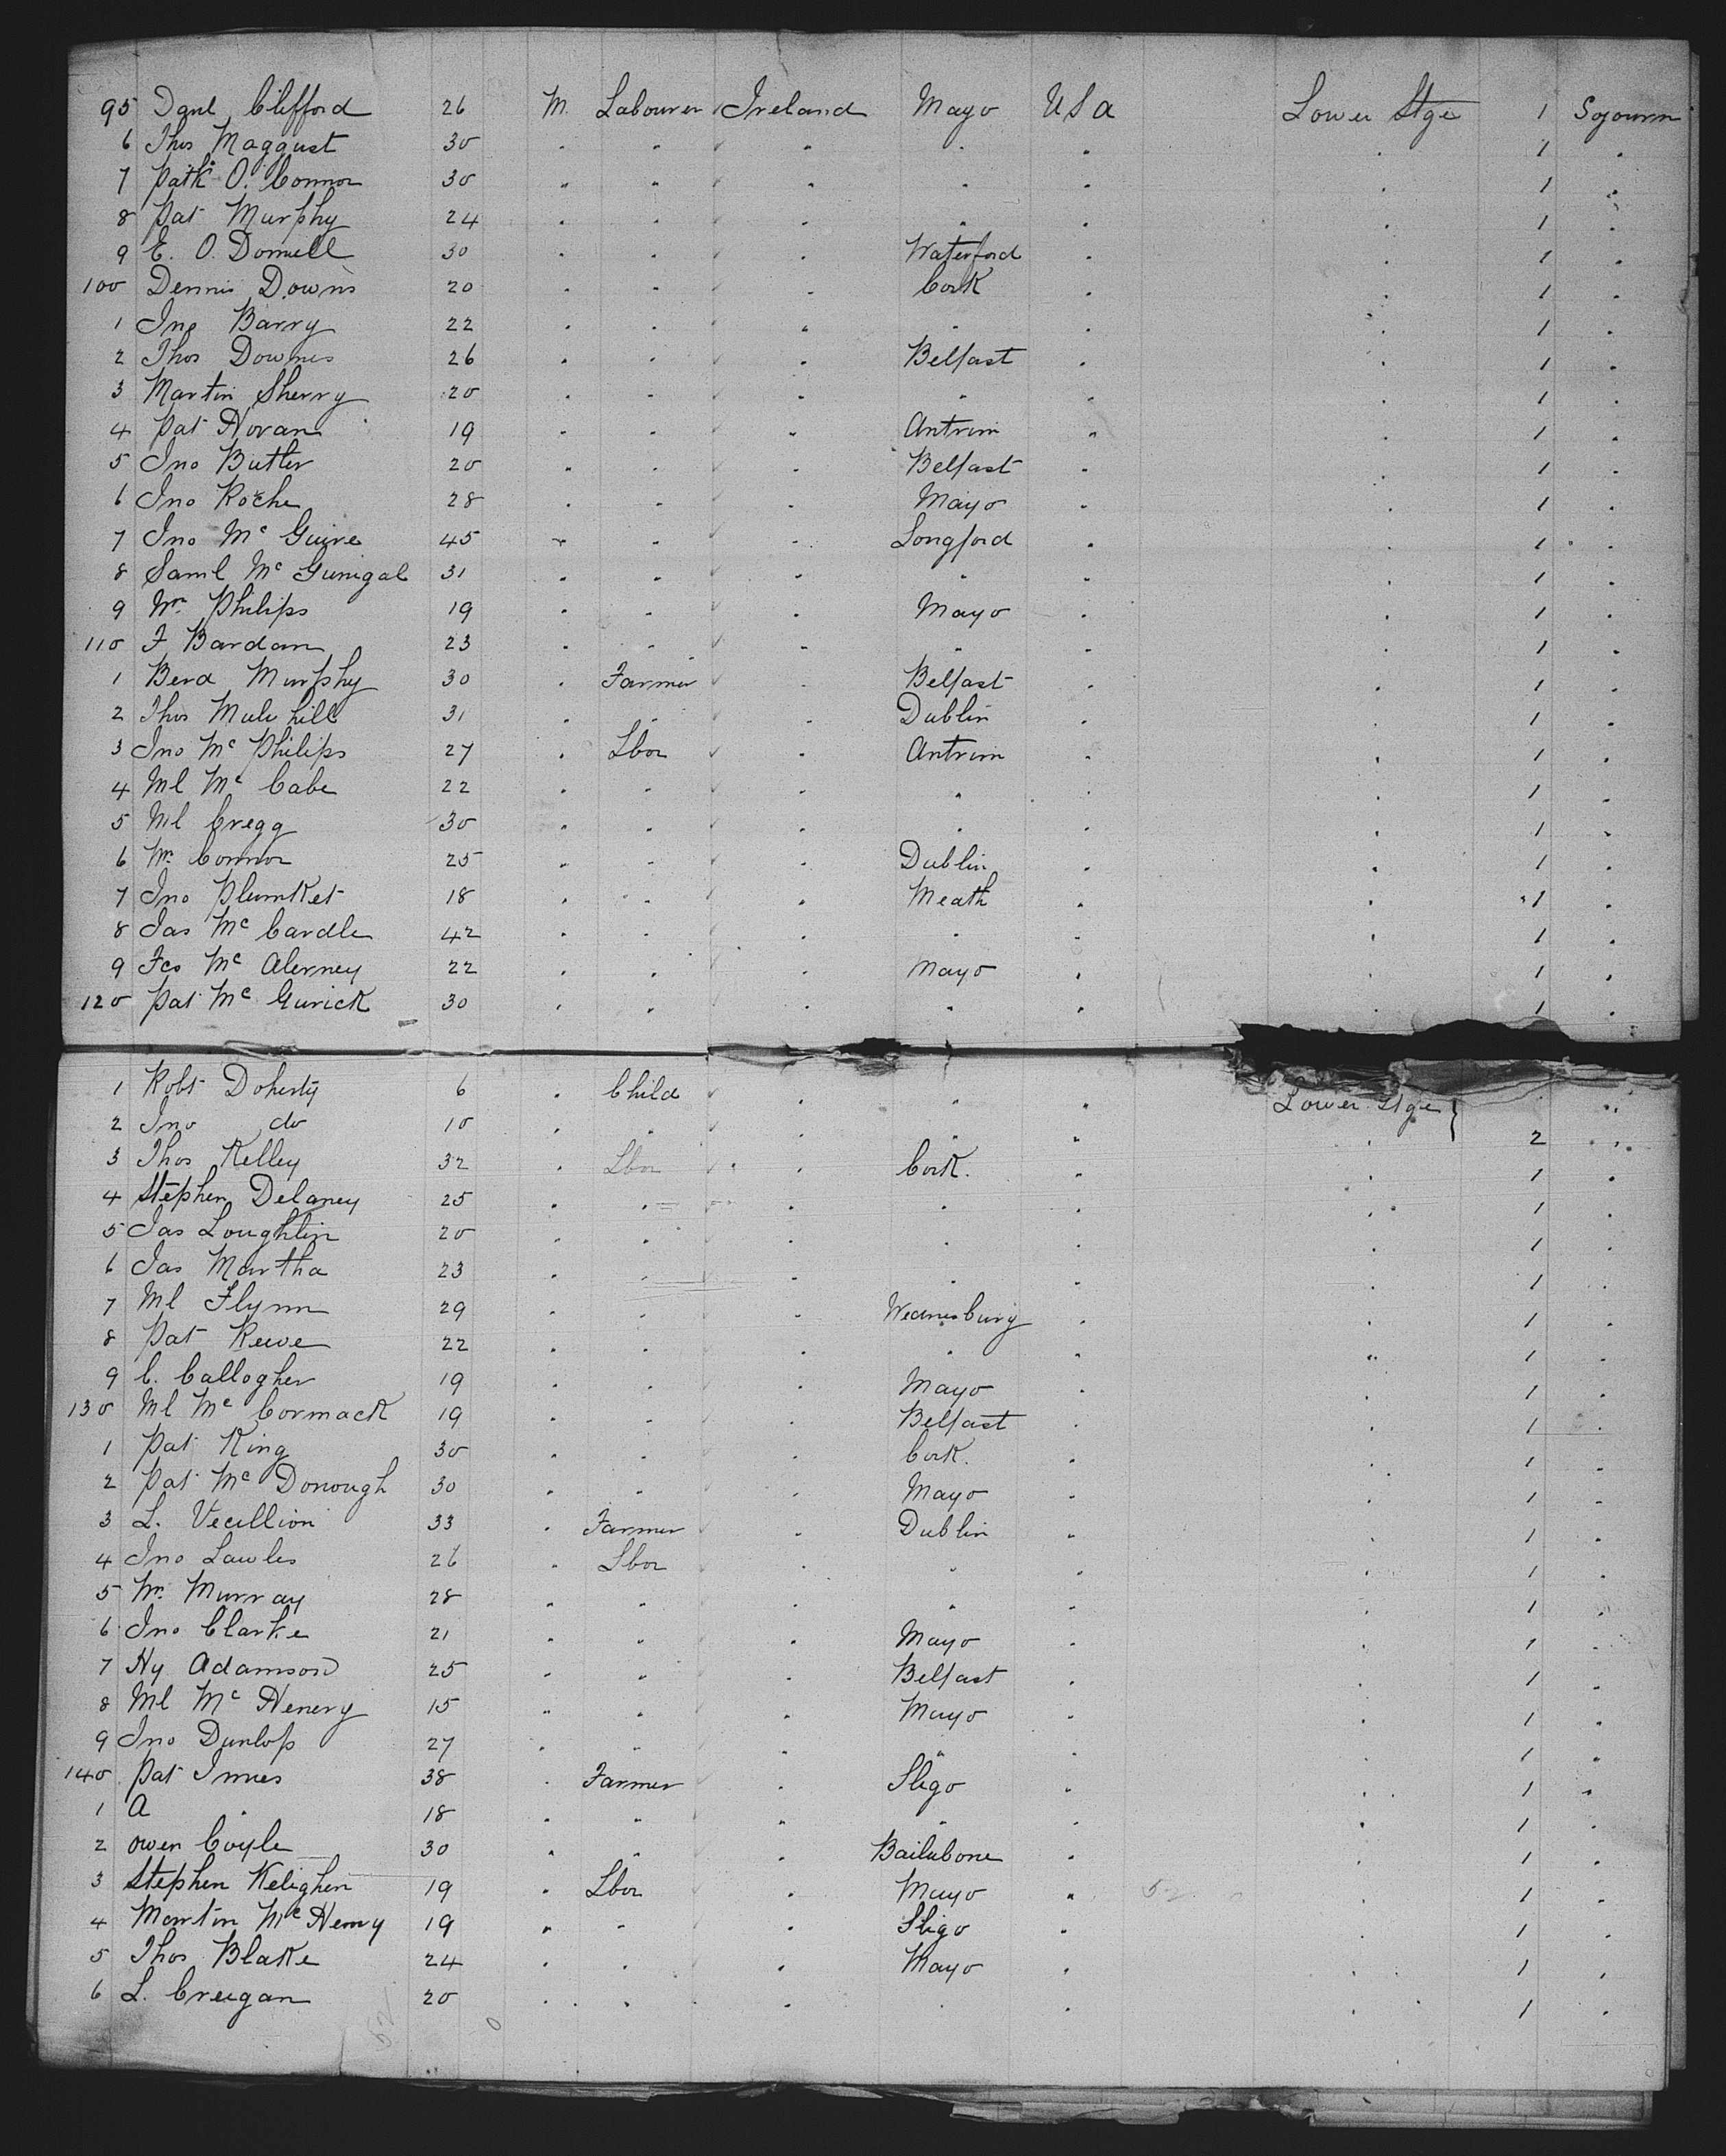 95 Danl Clifford 26 M. Labourer Ireland Mayo USA Lower Stge 1 Sojourn
6 Thos Maggust 30 " " " " " " 1 "
7 Patk O. Connor 30 " " " " " " 1 "
8 Pat Murphy 24 " " " " " " 1 "
9 E. O. Donnell 30 " " " Waterford " " 1 "
100 Dennis Downs 20 " " " Cork " " 1 "
1 Jno Barry 22 " " " " " " 1 "
2 Thos Downes 26 " " " Belfast " " 1 "
3 Martin Sherry 20 " " " " " " 1 "
4 Pat Horan 19 " " " Antrim " " 1 "
5 Jno Butler 20 " " " Belfast " " 1 "
6 Jno Roche 28 " " " Mayo " " 1 "
7 Jno Mc Guire 45 " " " Longford " " 1 "
8 Saml Mc Gunigal 31 " " " " " " 1 "
9 Wm Philips 19 " " " Mayo " " 1 "
110 F Bardan 23 " " " " " " 1 "
1 Berd Murphy 30 " Farmer " Belfast " " 1 "
2 Thos Mulvhill 31 " " " Dublin " " 1 "
3 Jno Mc Philips 27 " Lbor " Antrim " " 1 "
4 Ml Mc Cabe 22 " " " " " " 1 "
5 Ml Cregg 30 " " " " " " 1 "
6 Wm Connor 25 " " " Dublin " " 1 "
7 Jno Plumket 18 " " " Meath " " 1 "
8 Jas Mc Cardle 42 " " " " " " 1 "
9 Fcs Mc Alerney 22 " " " Mayo " " 1 "
120 Pat Mc Gurick 30 " " " " " " 1 "
1 Robt Doherty 6 " Child " " " Lower Stge "
2 Jno do 10 " " " " " " 2 "
3 Thos Kelley 32 " Lbor " Cork. " " 1 "
4 Stephen Delaney 25 " " " " " " 1 "
5 Jas Loughlin 20 " " " " " " 1 "
6 Jas Martha 23 " " " " " " 1 "
7 Ml Flynn 29 " " " Wednesbury " " 1 "
8 Pat Reeve 22 " " " " " " 1 "
9 C. Callogher 19 " " " Mayo " " 1 "
130 Ml Mc Cormack 19 " " " Belfast " " 1 "
1 Pat King 30 " " " Cork. " " 1 "
2 Pat Mc Donough 30 " " " Mayo " " 1 "
3 L. Vecillion 33 " Farmer " Dublin " " 1 "
4 Jno Lawles 26 " Lbor " " " " 1 "
5 Wm Murray 28 " " " " " " 1 "
6 Jno Clarke 21 " " " Mayo " " 1 "
7 Hy Adamson 25 " " " Belfast " " 1 "
8 Ml Mc Henery 15 " " " Mayo " " 1 "
9 Jno Dunlop 27 " " " " " " 1 "
140 Pat Innes 38 " Farmer " Sligo " " 1 "
1 A " 18 " " " " " " 1 "
2 Owen Coyle 30 " " " Bailubone " " 1 "
3 Stephen Kelighen 19 " Lbor " Mayo " 52 " 1 "
4 Martin Mc Henry 19 " " " Sligo " " 1 "
5 Thos Blake 24 " " " Mayo " " 1 "
6 L. Creegan 20 " " " " " " 1 "
52